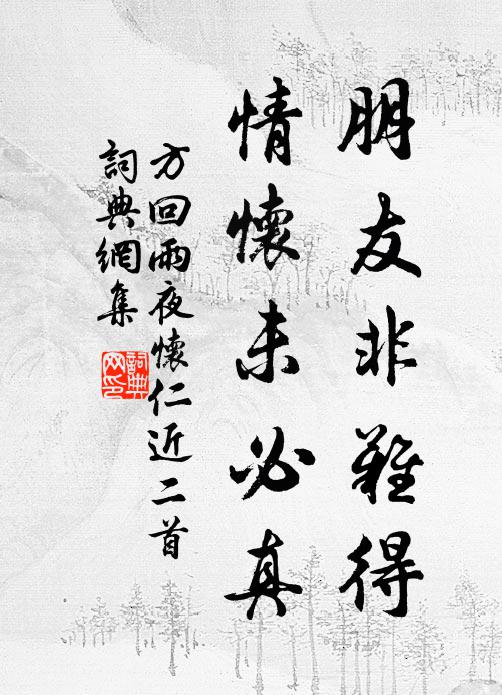 朋友非難得
情懷未必真
方回雨夜懷仁近二首
詞典網集
詞典网印